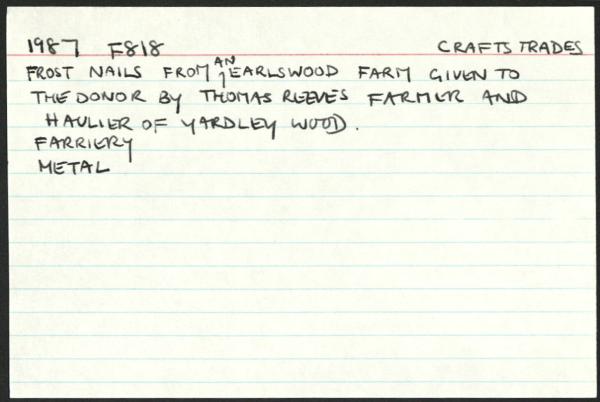 1987 F818 CRAFTS TRADES
FROST NAILS FROM AN EARLSWOOD FARM GIVEN TO
THE DONOR BY THOMAS REEVES FARMER AND
HAULIER OF YARDLEY WOOD.
FARRIERY
METAL